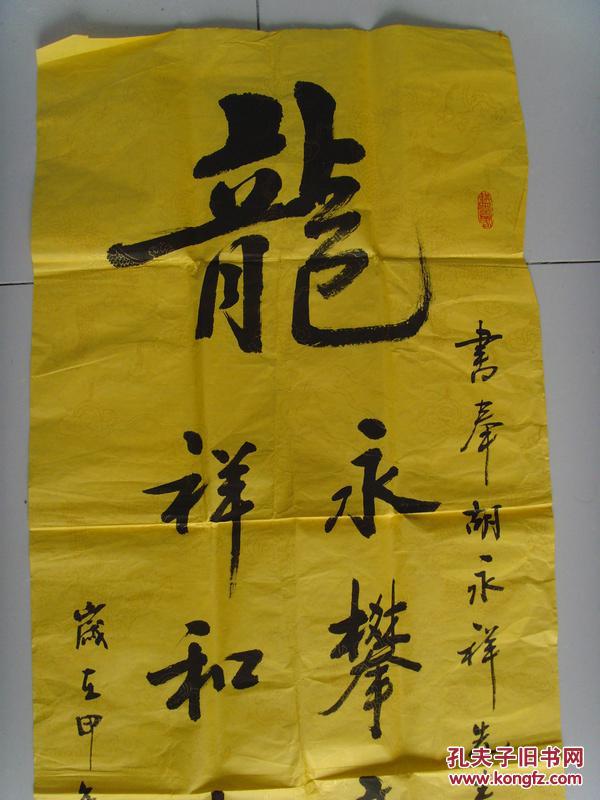 龍
书奉胡永祥先生
永攀
祥和
歲在甲
孔夫子旧书网
www.kongfz.com